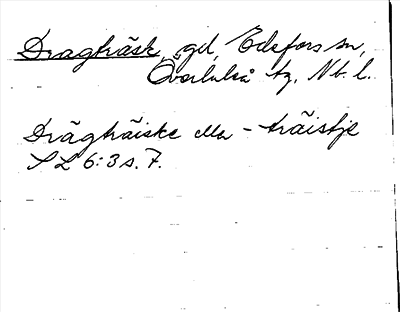 Dragträsk, gd, Edefors sn,
Överluleå tg, Nb. l.
Drägträiske eller - träistje
SL 6:3 s. 7.